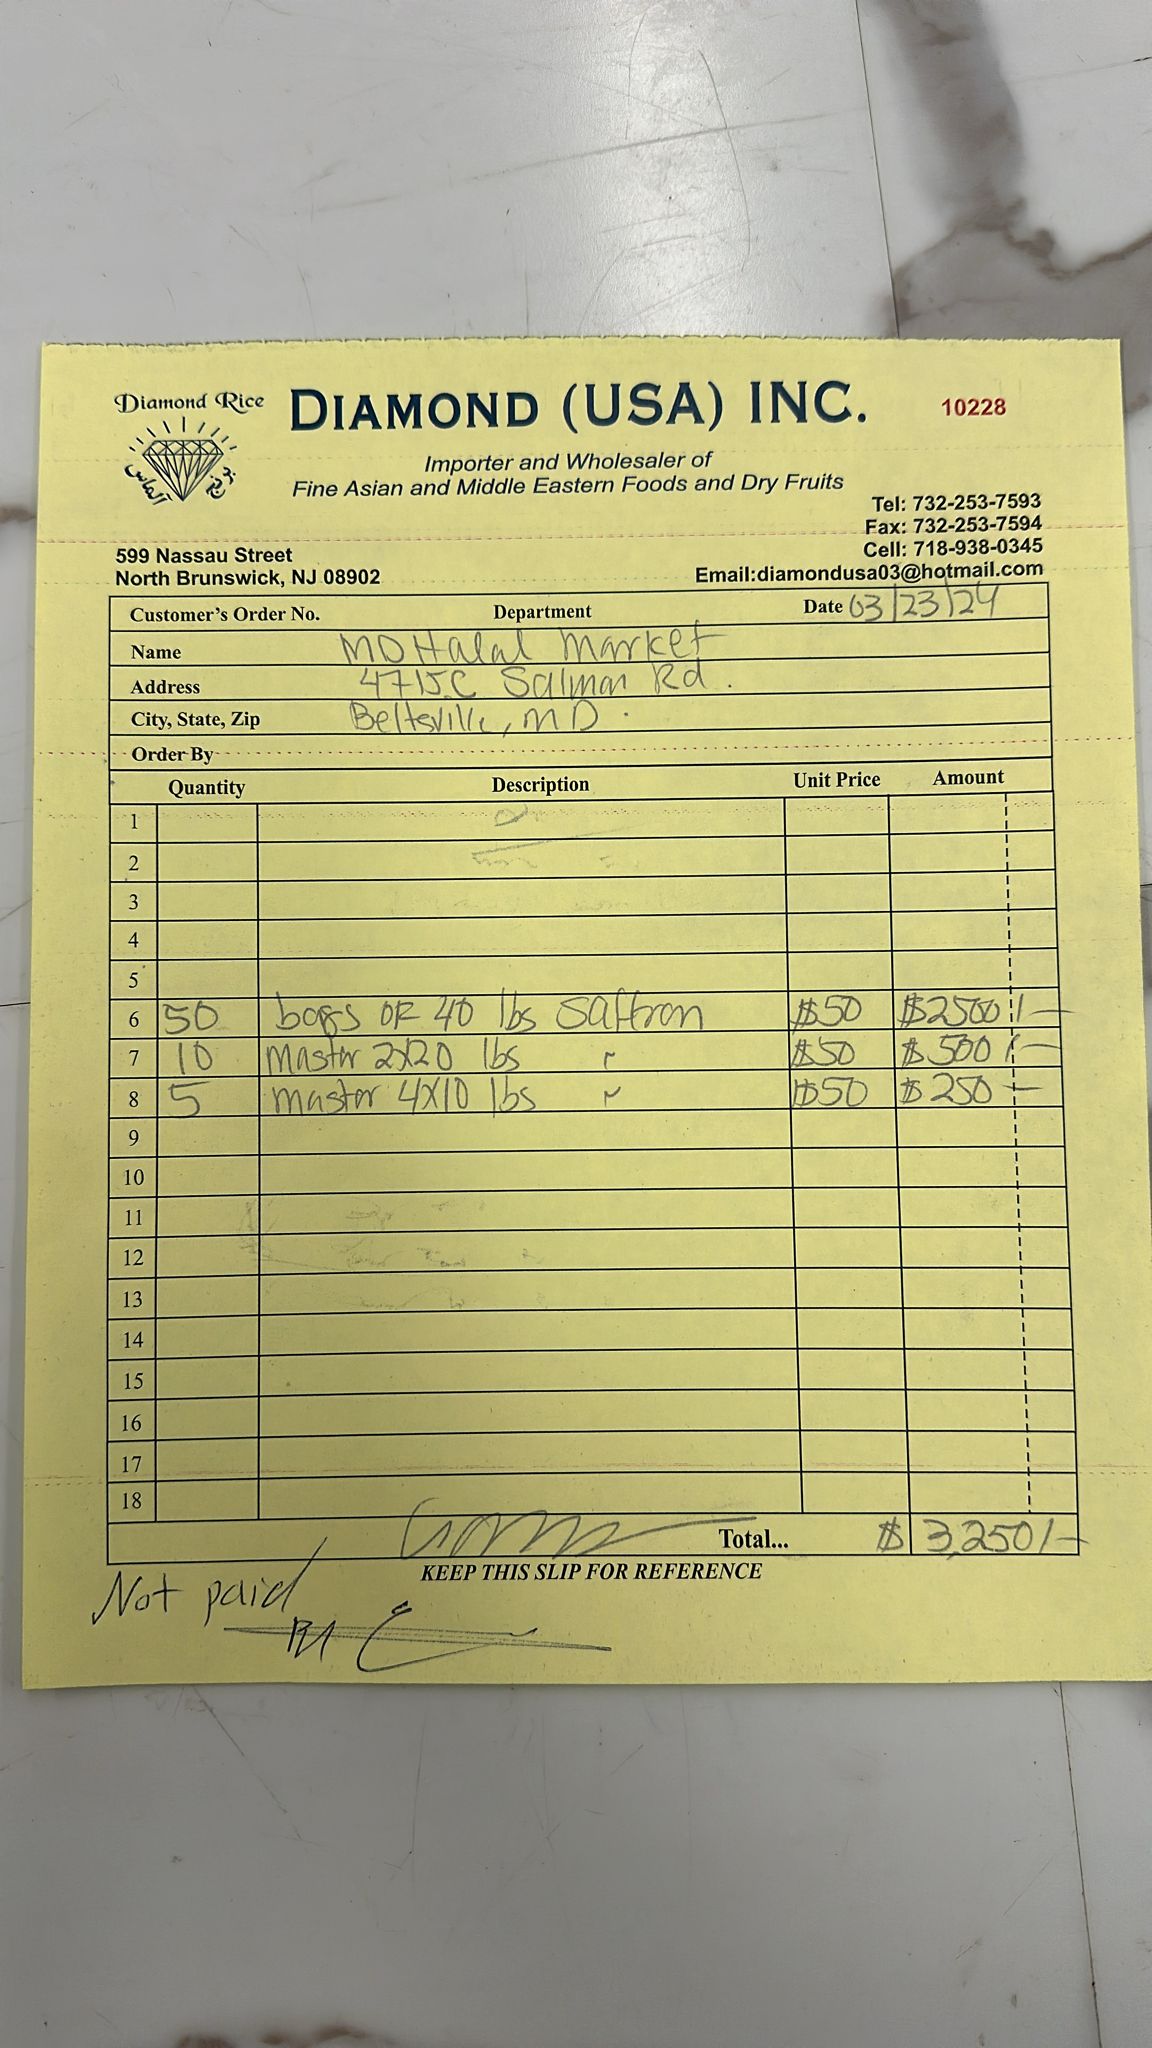 Diamond Rice
DIAMOND (USA) INC.
10228
Importer and Wholesaler of
Fine Asian and Middle Eastern Foods and Dry Fruits
Tel: 732-253-7593
Fax: 732-253-7594
Cell: 718-938-0345
599 Nassau Street
North Brunswick, NJ 08902
Email:diamondusa03@hotmail.com
Customer's Order No. Department Date 03/23/24
Name MD Halal Market
Address 4715C Salman Rd.
City, State, Zip Beltsville, MD.
Order By
Quantity Description Unit Price Amount
1
2
3
4
5
6 50 bags OF 40 lbs Saffron $50 $2500/-
7 10 master 2x20 lbs " $50 $500/-
8 5 master 4x10 lbs " $50 $250-
9
10
11
12
13
14
15
16
17
18
Total... $ 3,250/-
KEEP THIS SLIP FOR REFERENCE
Not paid